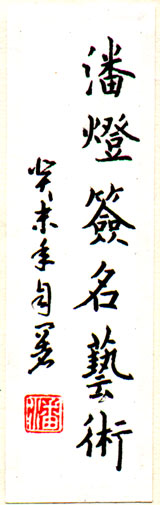 潘燈簽名藝術
癸未年自署
潘